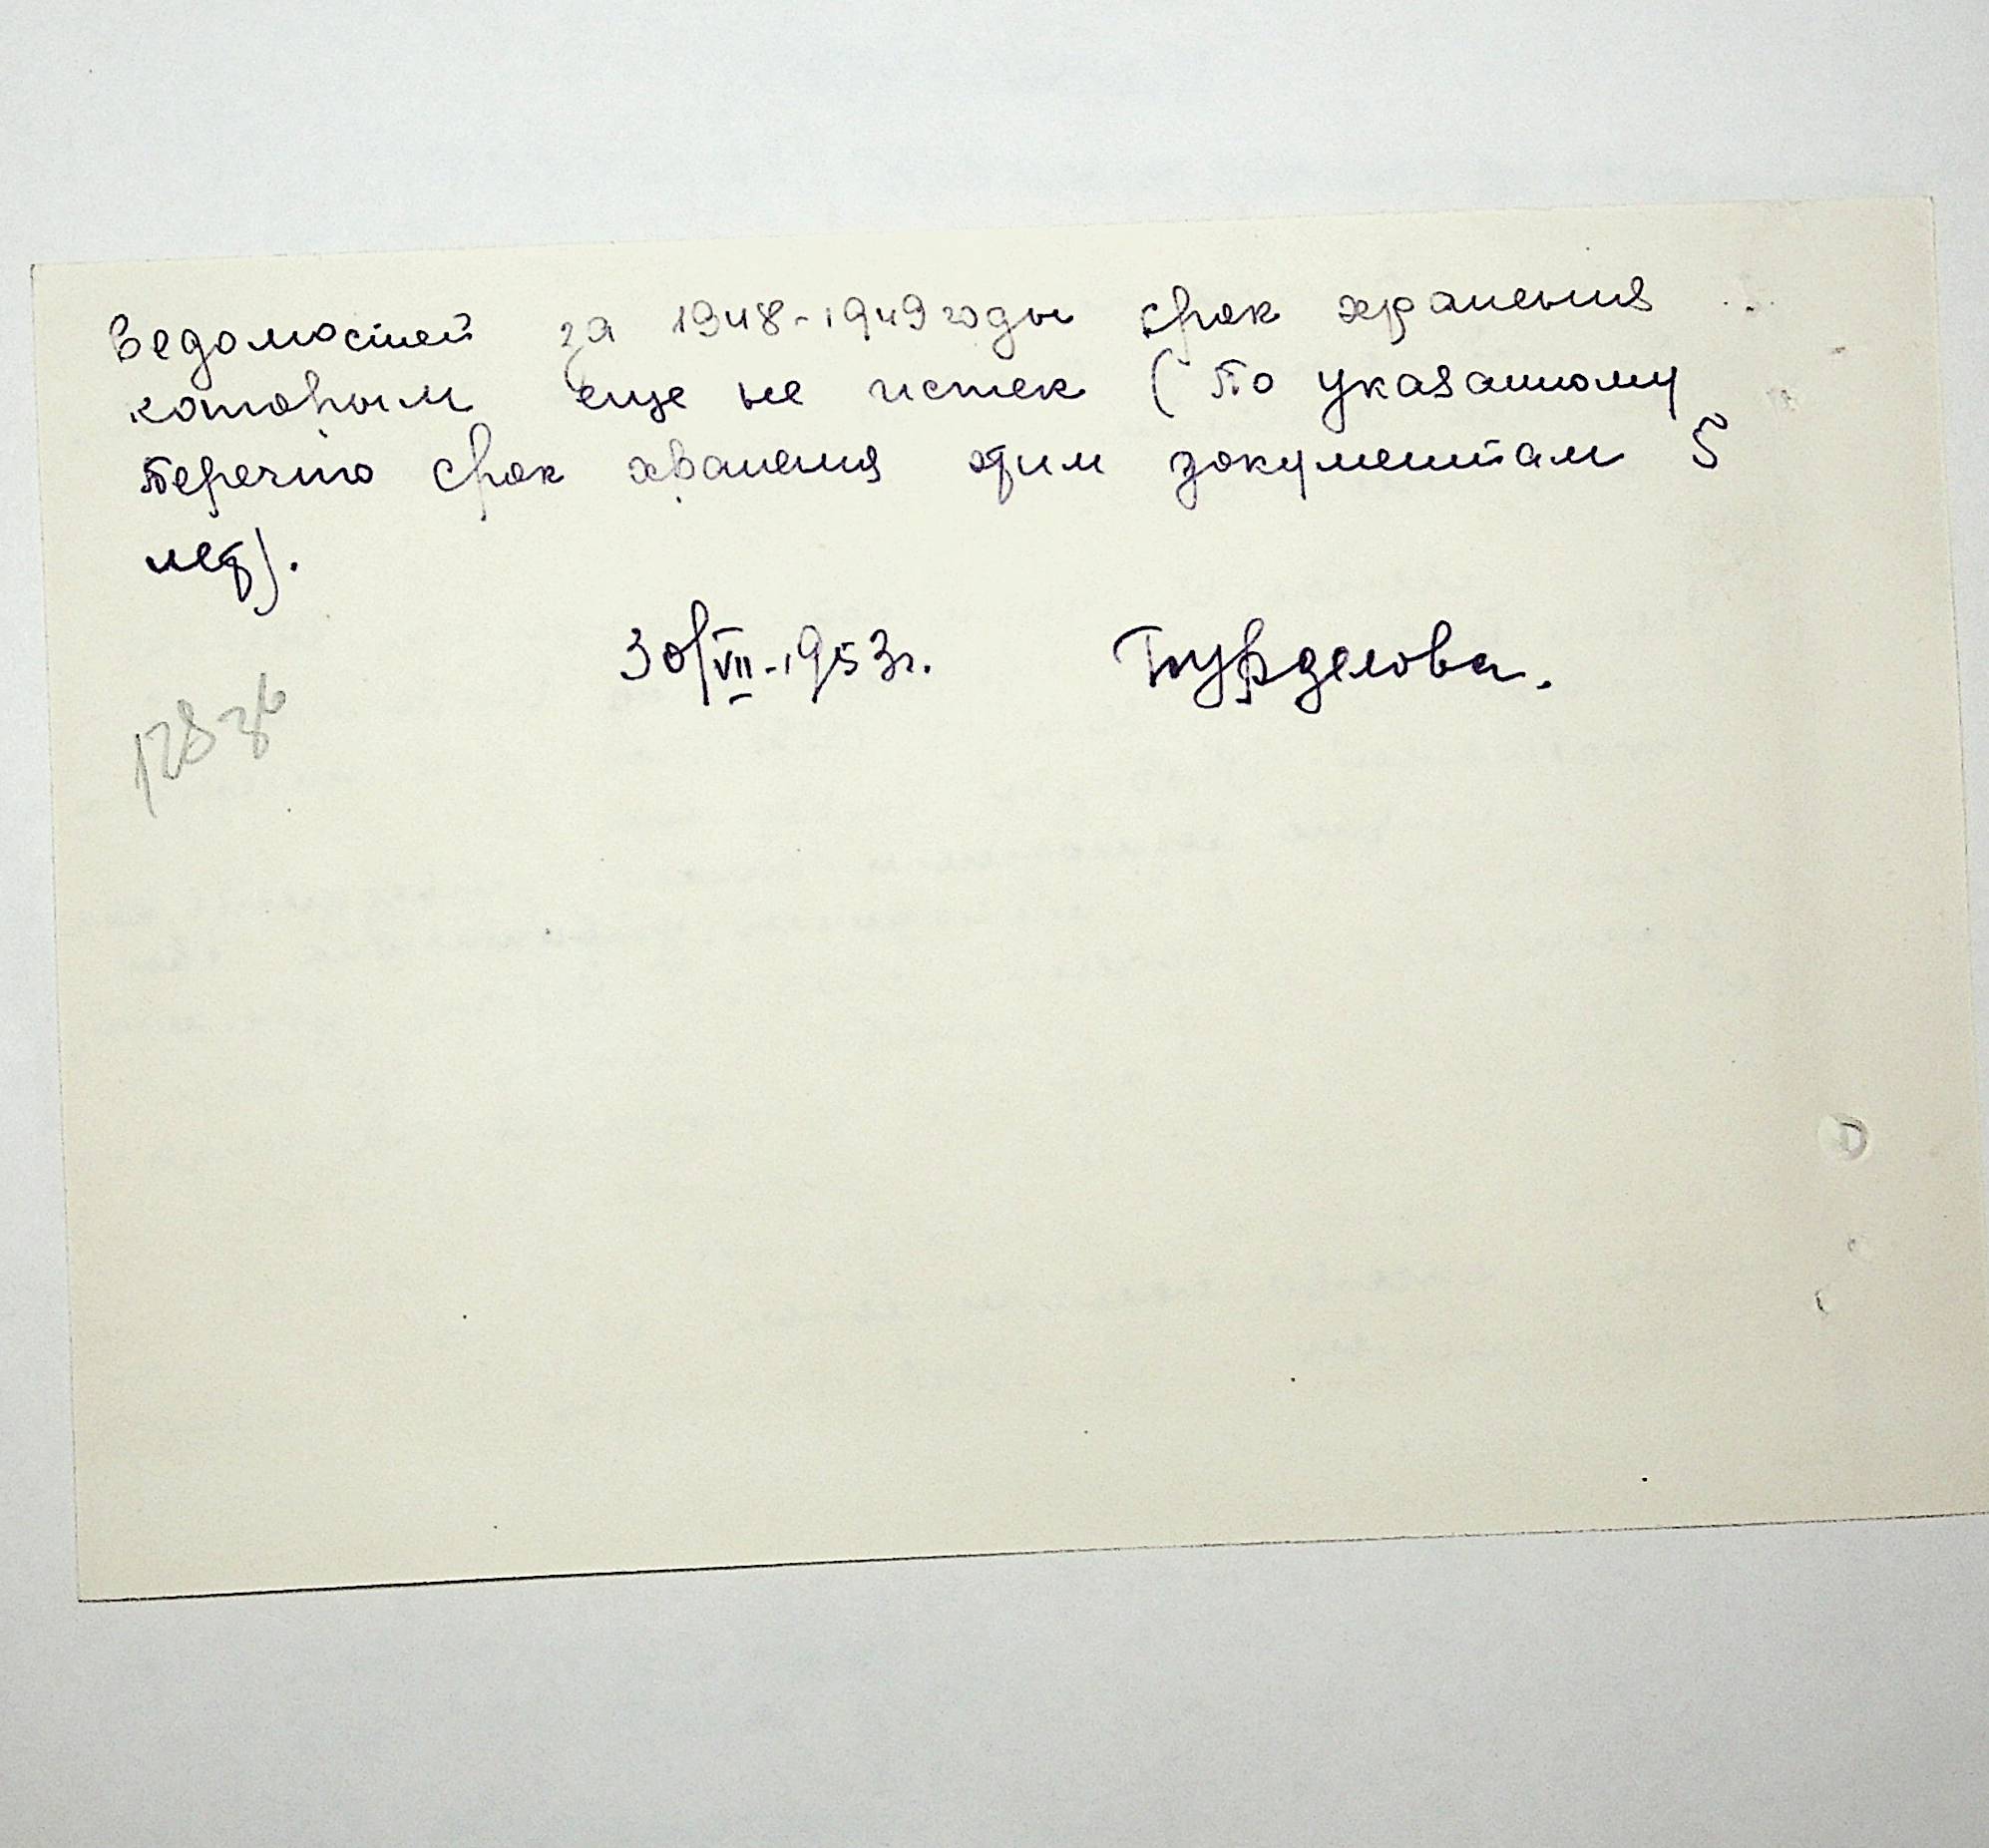 ведомостей за 1948-1949 годы срок хранения
которым еще не истек (по указанному
перечню срок хранения этим документам 5
лет).
30/VII-1953г.